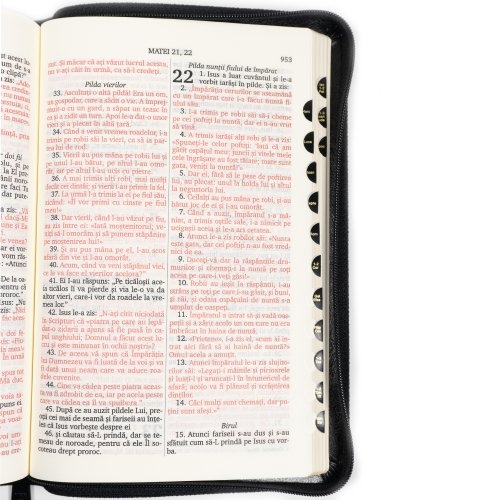 MATEI 21, 22
953
tur. Și măcar că ați văzut lucrul acesta,
nu v-ați căit în urmă, ca să-l credeți.
Pilda vierilor
33. Ascultați o altă pildă! Era un om,
un gospodar, care a sădit o vie. A împrejmuit-o
cu un gard, a săpat un teasc în
ea și a zidit un turn. Apoi le-a dat-o unor
vieri și a plecat în altă țară.
34. Când a venit vremea roadelor, i-a
trimis pe robii săi la vieri, ca să ia partea
lui de rod.
35. Vierii au pus mâna pe robii lui și
pe unul l-au bătut, pe altul l-au omorât,
iar pe altul l-au ucis cu pietre.
36. A mai trimis alți robi, mai mulți
decât cei dintâi; și vierii i-au primit la fel.
37. La urmă l-a trimis la ei pe fiul său,
zicând: «Îl vor primi cu cinste pe fiul
meu!»
38. Dar vierii, când l-au văzut pe fiul,
au zis între ei: «Iată moștenitorul; veniți
să-l omorâm și să punem stăpânire
pe moștenirea lui!»
39. Și au pus mâna pe el, l-au scos
afară din vie și l-au omorât.
40. Acum, când va veni stăpânul viei,
ce le va face el vierilor acelora?”
41. Ei I-au răspuns: „Pe ticăloșii aceia
ticălos îi va pierde și via le-o va da
altor vieri, care-i vor da roadele la vremea
lor.”
42. Isus le-a zis: „N-ați citit niciodată
în Scripturi că «piatra pe care au lepădat-o
ziditorii a ajuns să fie pusă în capul
unghiului; Domnul a făcut acest lucru
și este minunat în ochii noștri»?
43. De aceea vă spun că Împărăția
lui Dumnezeu va fi luată de la voi și va fi
dată unui neam care va aduce roadele
cuvenite.
44. Cine va cădea peste piatra aceasta
va fi zdrobit de ea, iar pe acela peste
care va cădea ea îl va spulbera.”
45. După ce au auzit pildele Lui, preoții
cei mai de seamă și fariseii au înțeles
că Isus vorbește despre ei
46. și căutau să-L prindă, dar se temeau
de noroade, pentru că ele Îl socoteau
drept proroc.
Pilda nunții fiului de împărat
22 1. Isus a luat cuvântul și le-a
vorbit iarăși în pilde. Și a zis:
2. „Împărăția cerurilor se aseamănă
cu un împărat care i-a făcut nuntă fiului
său.
3. I-a trimis pe robii săi să-i cheme
pe cei poftiți la nuntă, dar ei n-au vrut
să vină.
4. A trimis iarăși alți robi și le-a zis:
«Spuneți-le celor poftiți: ‘Iată că am
gătit ospățul meu; juncii și vitele mele
cele îngrășate au fost tăiate; toate sunt
gata, veniți la nuntă’!»
5. Dar ei, fără să le pese de poftirea
lui, au plecat: unul la holda lui și altul
la negustoria lui.
6. Ceilalți au pus mâna pe robi, și-au
bătut joc de ei și i-au omorât.
7. Când a auzit, împăratul s-a mâniat,
a trimis oștile sale, i-a nimicit pe
ucigașii aceia și le-a ars cetatea.
8. Atunci le-a zis robilor săi: «Nunta
este gata, dar cei poftiți n-au fost vrednici
de ea.
9. Duceți-vă dar la răspântiile drumurilor
și chemați-i la nuntă pe toți
aceia pe care-i veți găsi.»
10. Robii au ieșit la răspântii, i-au
strâns pe toți pe care i-au găsit, și buni,
și răi, și odaia ospățului de nuntă s-a
umplut de oaspeți.
11. Împăratul a intrat să-și vadă oaspeții
și l-a zărit acolo pe un om care nu era
îmbrăcat în haina de nuntă.
12. «Prietene», i-a zis el, «cum ai intrat
aici fără să ai haină de nuntă?»
Omul acela a amuțit.
13. Atunci împăratul le-a zis slujitorilor
săi: «Legați-i mâinile și picioarele
și luați-l și aruncați-l în întunericul de
afară; acolo va fi plânsul și scrâșnirea
dinților.
14. Căci mulți sunt chemați, dar puțini
sunt aleși.»”
Birul
15. Atunci fariseii s-au dus și s-au
sfătuit cum să-L prindă pe Isus cu vorba.